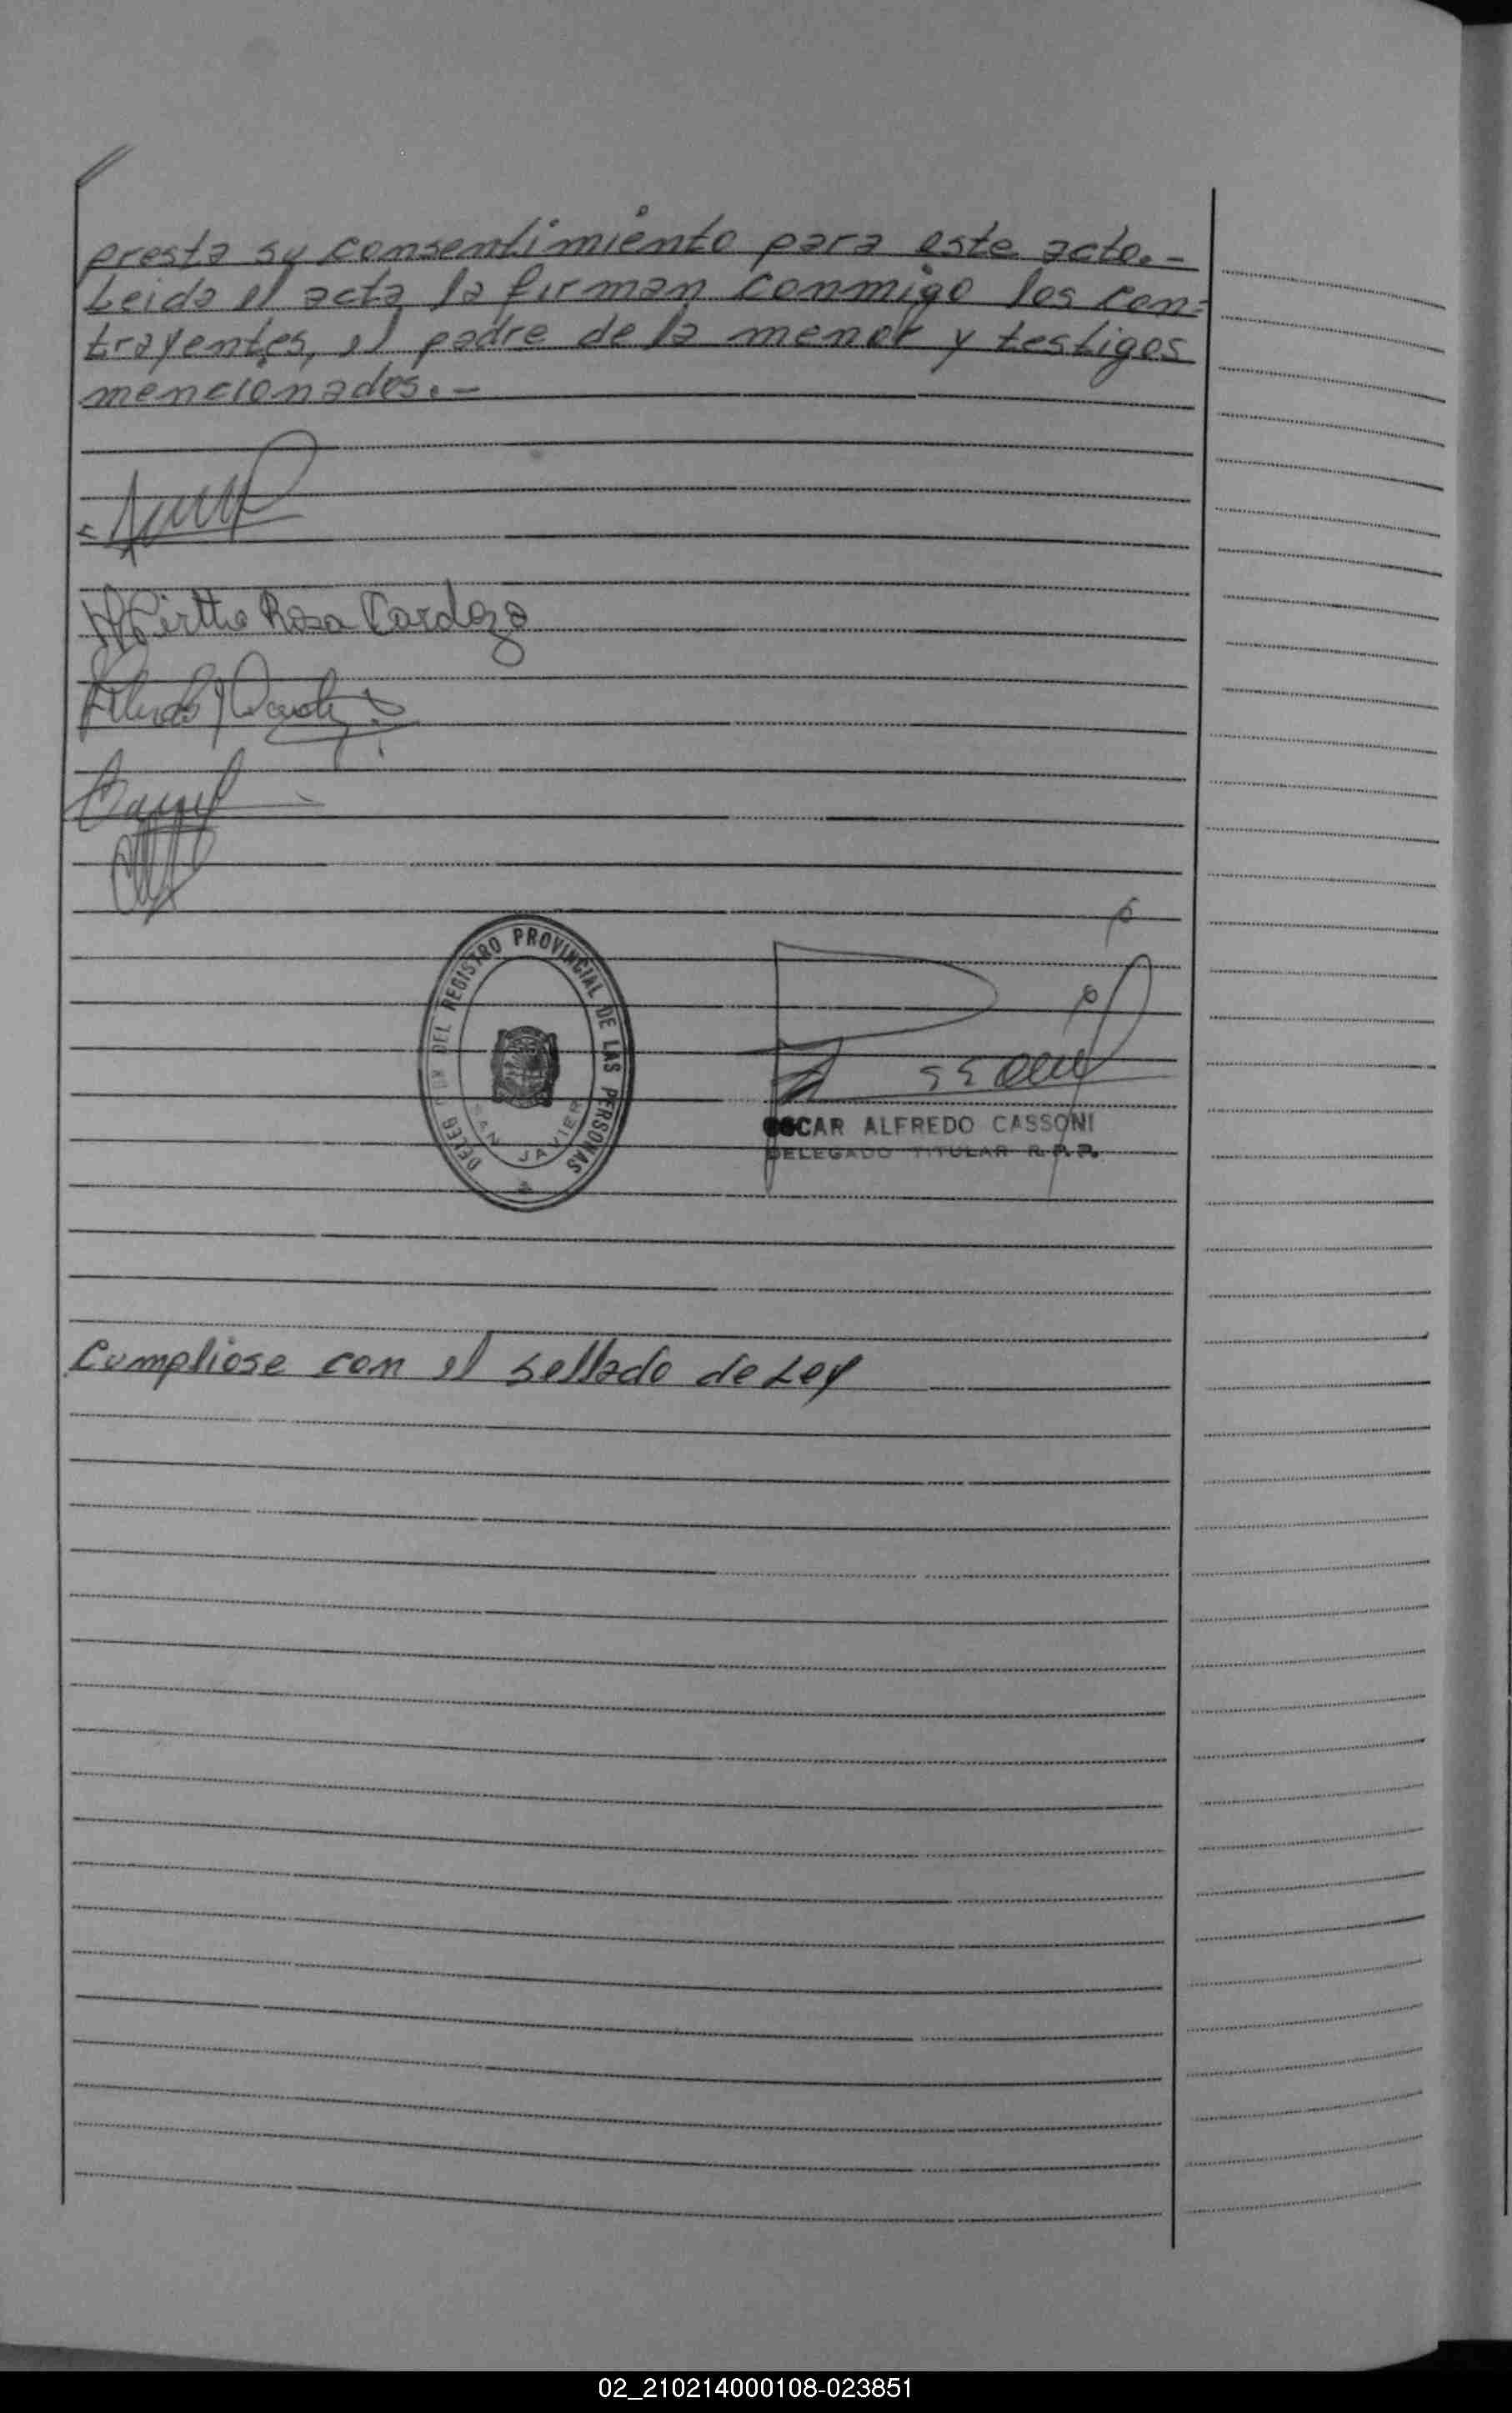 presta su consentimiento para este acto.-
Leida el acta la firman conmigo los con=
trayentes, el padre de la menor y testigos
mencionados.-
Mirtha Rosa Cardozo
DELEGACION DEL REGISTRO PROVINCIAL DE LAS PERSONAS
SAN JAVIER
OSCAR ALFREDO CASSONI
DELEGADO TITULAR R.P.P.
Cumpliose con el sellado de Ley
02_210214000108-023851